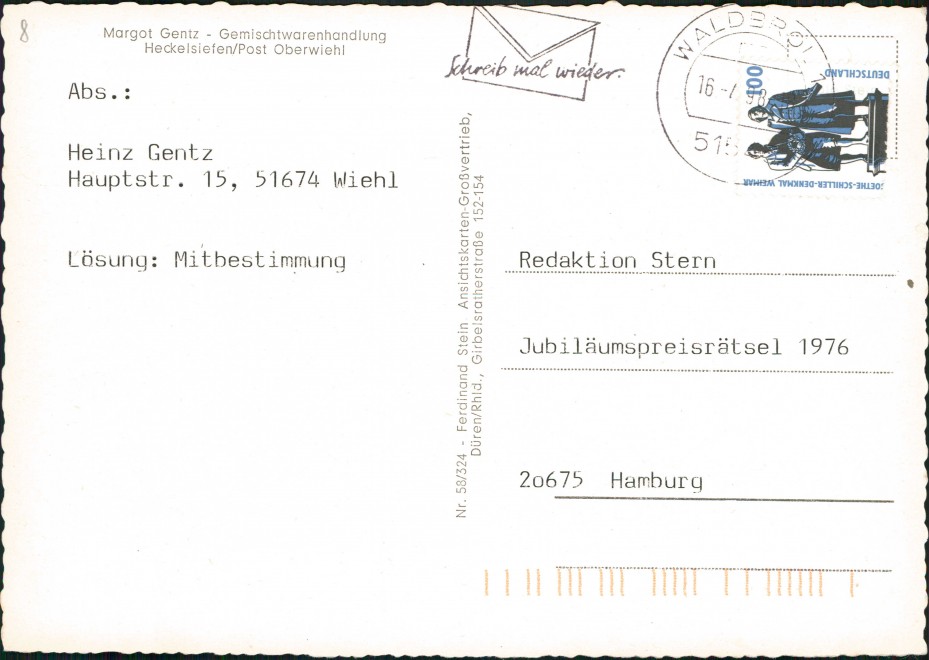 8
Margot Gentz - Gemischtwarenhandlung
Heckelsiefen/Post Oberwiehl
Abs.:
Heinz Gentz
Hauptstr. 15, 51674 Wiehl
Lösung: Mitbestimmung
Nr. 58/324 - Ferdinand Stein Ansichtskarten-Großvertrieb,
Düren/Rhld., Girbelsratherstraße 152-154
Schreib mal wieder.
WALDBRÖL 1
16
98
515
100
DEUTSCHLAND
GOETHE-SCHILLER-DENKMAL WEIMAR
Redaktion Stern
Jubiläumspreisrätsel 1976
2o675 Hamburg